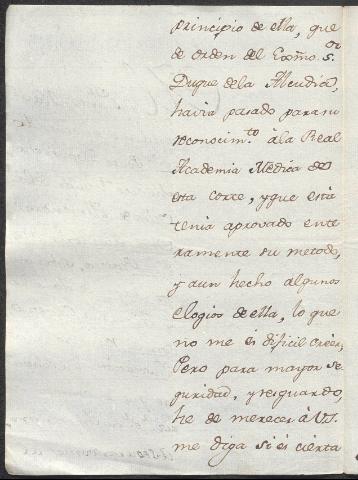 principio de ella, que
de orden del Exmo. S.or
Duque dela Alcudia,
havia pasado para su
reconocim.to àla Real
Academia Medica de
esta Corte, y que està
tenia aprovado ente
ramente su metodo,
y aun hecho algunos
elogios de ella, lo que
no me és dificil creér,
Pero para mayor se
guridad, y resguardo,
he de merecer à V.S.
me diga si és cierta